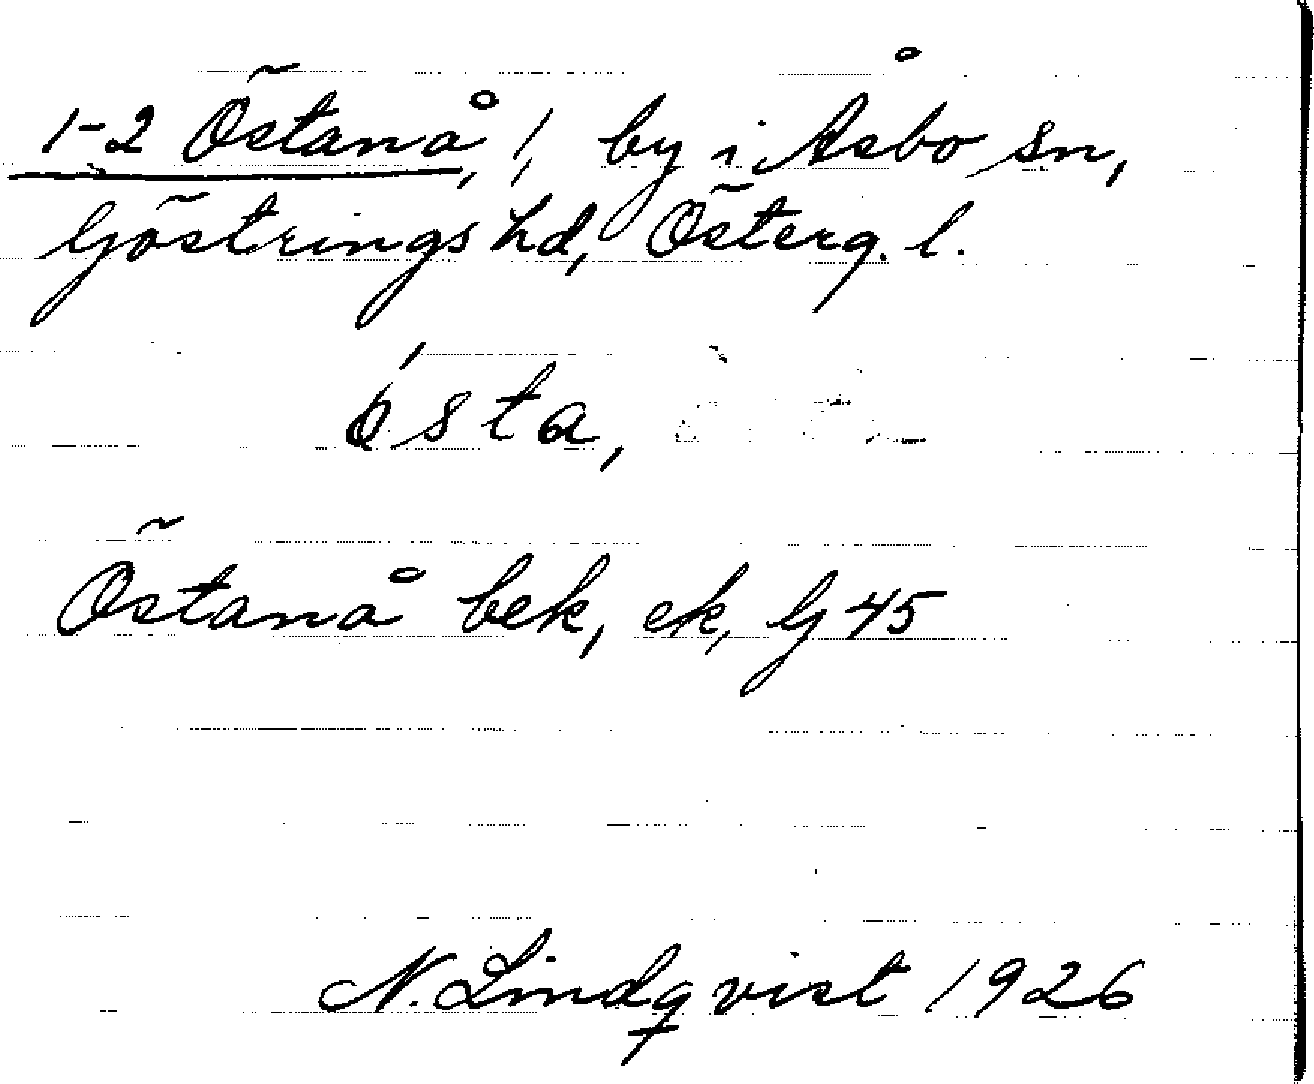 1-2 Östanå, 1, by i Åsbo sn,
Göstrings hd, Österg. l.
östa,
Östanå bek, ek, G 45
N. Lindqvist 1926